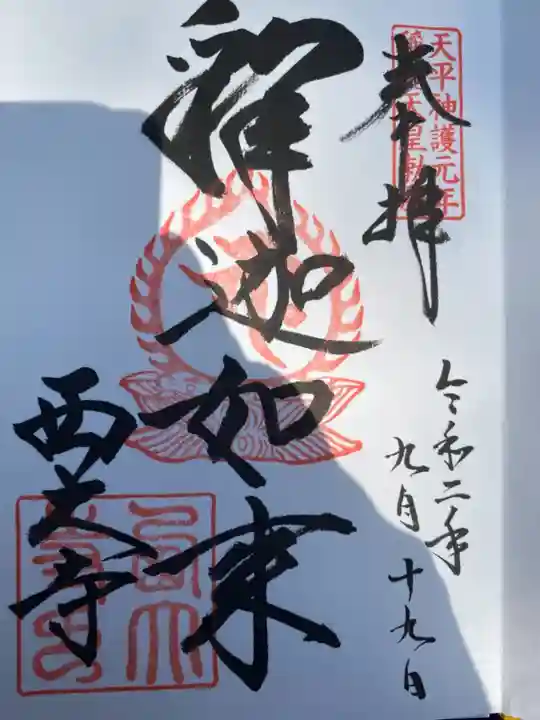 奉拝
天平神護元年
天皇勅
令和二年
九月十九日
釋迦如来
西大寺